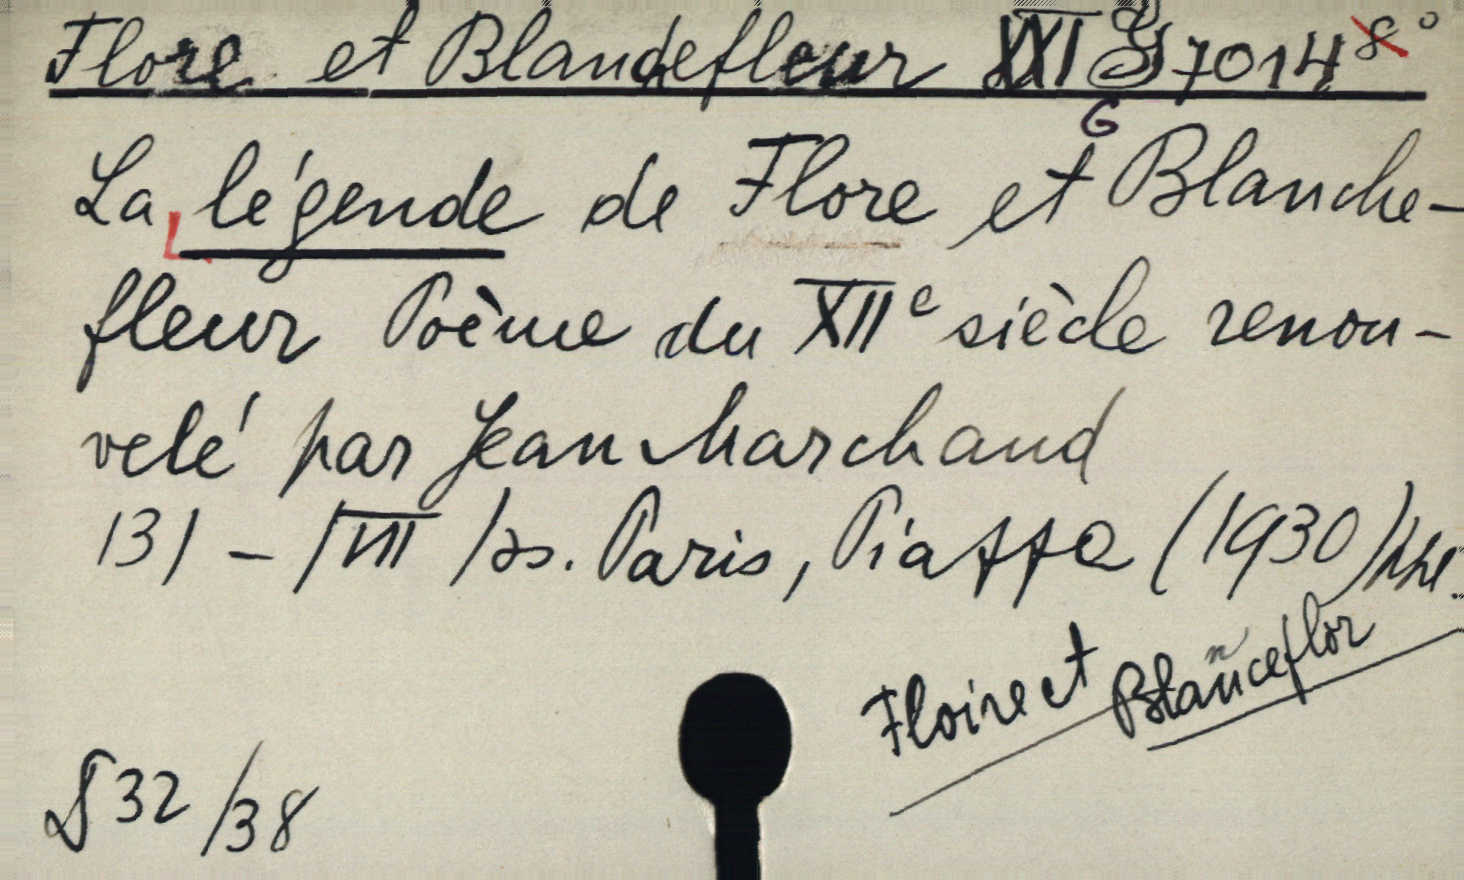 Flore et Blanchefleur XXI G 7014 8°
G
La légende de Flore et Blanche-
fleur Poème du XIIe siècle renou-
velé par Jean Marchand
131 - /VII /ss. Paris, Piazza (1930)
Floire et Blanceflor
n
S 32/38